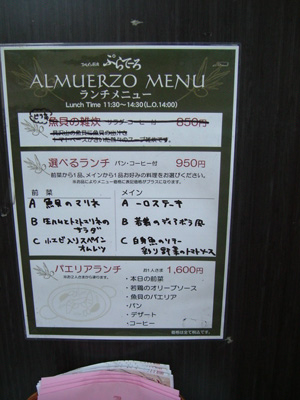 スペイン料理 ぷらてーろ
ALMUERZO MENU
ランチメニュー
Lunch Time 11:30~14:30(L.O.14:00)
魚貝の雑炊 サラダ・コーヒー付 850円
選べるランチ パン・コーヒー付 950円
前菜から1品、メインから1品お好みの料理をお選びください。
前 菜 メイン
A 魚貝のマリネ A 一口ステーキ
B 生ハムとトマトとリネのサラダ B 若鶏のディアボラ風
C 小エビ入りスペインオムレツ C 白身魚のソテー
彩り野菜のトマトソース
パエリアランチ お1人さま 1,600円
・本日の前菜
・若鶏のオリーブソース
・魚貝のパエリア
・パン
・デザート
・コーヒー